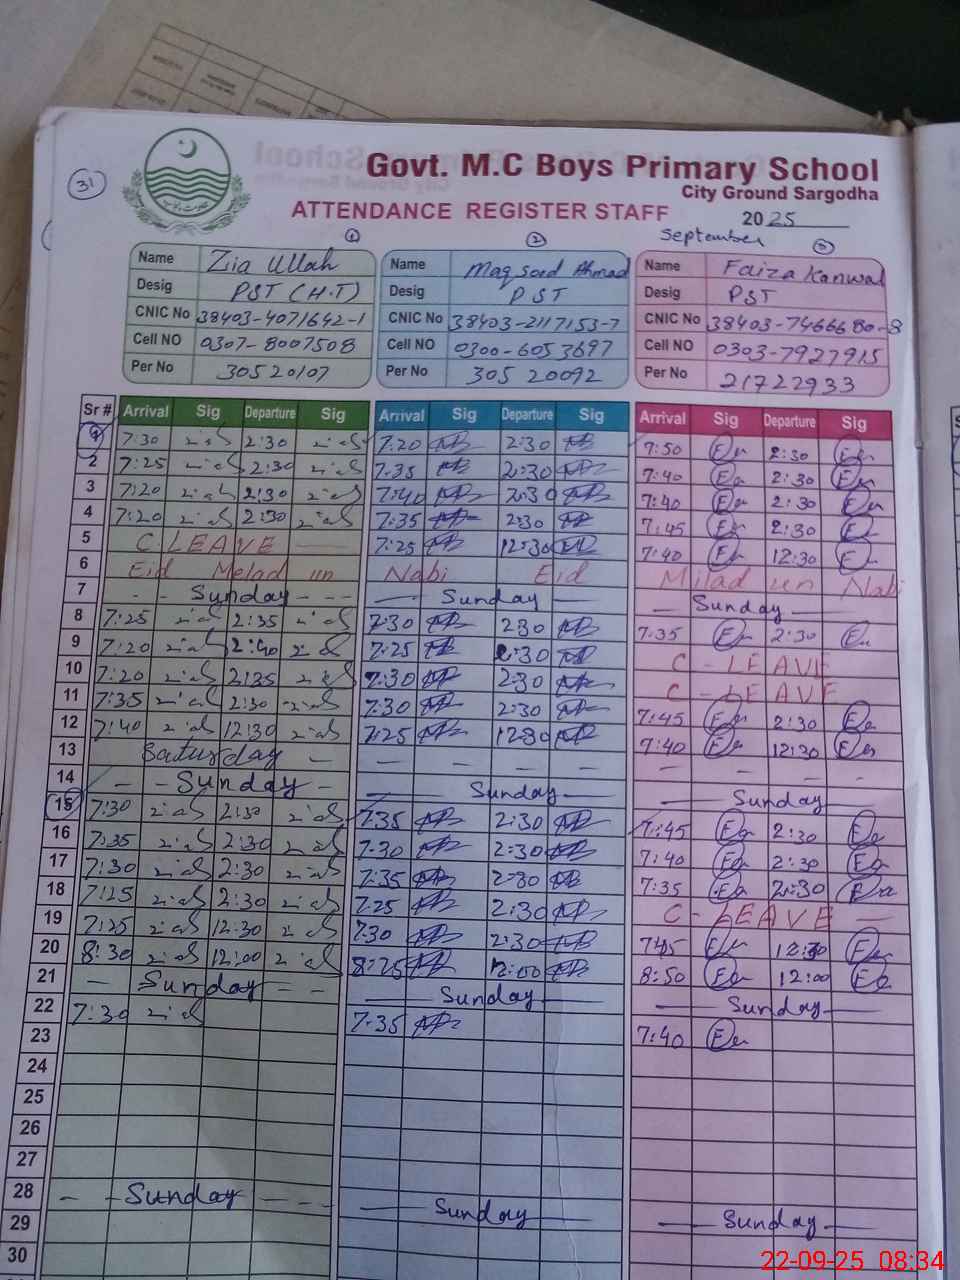 31
Govt. M.C Boys Primary School
City Ground Sargodha
ATTENDANCE REGISTER STAFF
2025
September
1 2 3
Name Zia Ullah Name Maqsood Ahmad Name Faiza Kanwal
Desig PST (H.T) Desig PST Desig PST
CNIC No 38403-4071642-1 CNIC No 38403-2117153-7 CNIC No 38403-7466680-8
Cell NO 0307-8007508 Cell NO 0300-6053697 Cell NO 0303-7927915
Per No 30520107 Per No 30520092 Per No 21722933
Sr # Arrival Sig Departure Sig Arrival Sig Departure Sig Arrival Sig Departure Sig
1 7:30 2:30 7:20 2:30 7:50 2:30
2 7:25 2:30 7:35 2:30 7:40 2:30
3 7:20 2:30 7:40 2:30 7:40 2:30
4 7:20 2:30 7:35 2:30 7:45 2:30
5 C.LEAVE 7:25 12:30 7:40 12:30
6 Eid Melad un Nabi Eid Milad un Nabi
7 Sunday Sunday Sunday
8 7:25 2:35 7:30 2:30 7:35 2:30
9 7:20 2:40 7:25 2:30 C-LEAVE
10 7:20 2:35 7:30 2:30 C-LEAVE
11 7:35 2:30 7:30 2:30 7:45 2:30
12 7:40 12:30 7:25 12:30 7:40 12:30
13 Saturday — — — — — — — —
14 Sunday Sunday Sunday
15 7:30 2:30 7:35 2:30 7:45 2:30
16 7:35 2:30 7:30 2:30 7:40 2:30
17 7:30 2:30 7:35 2:30 7:35 2:30
18 7:25 2:30 7:25 2:30 C-LEAVE
19 7:25 12:30 7:30 2:30 7:45 12:30
20 8:30 12:00 8:25 12:00 8:50 12:00
21 Sunday Sunday Sunday
22 7:30 7:35 7:40
23
24
25
26
27
28 Sunday Sunday Sunday
29
30
22-09-25 08:34